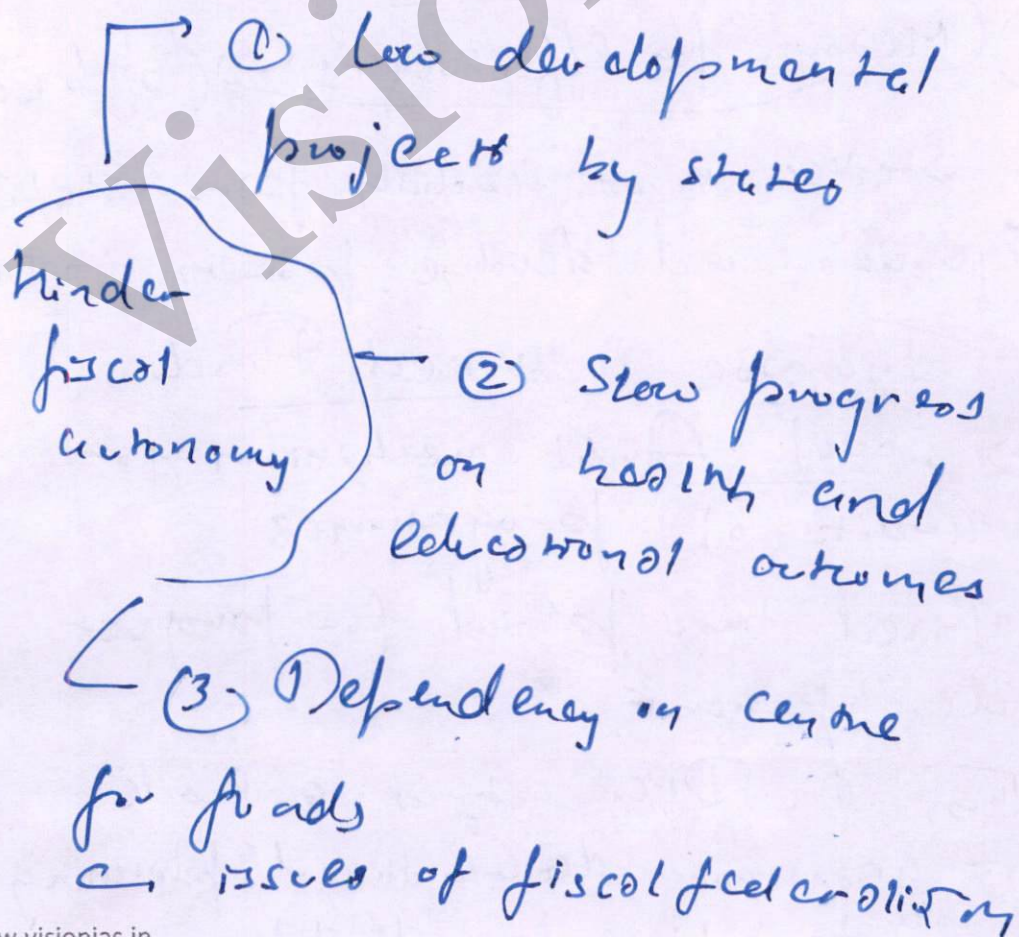 ① Low developmental
projects by states
Hinder
fiscal
autonomy
② Slow progress
on health and
educational outcomes
③ Dependency on Centre
for funds
↳ issues of fiscal federalism
Vision
www.visionias.in